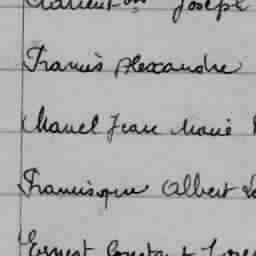 Joseph
Francis Alexandre
Marcel Jean Marie
Francisque Albert
Ernest